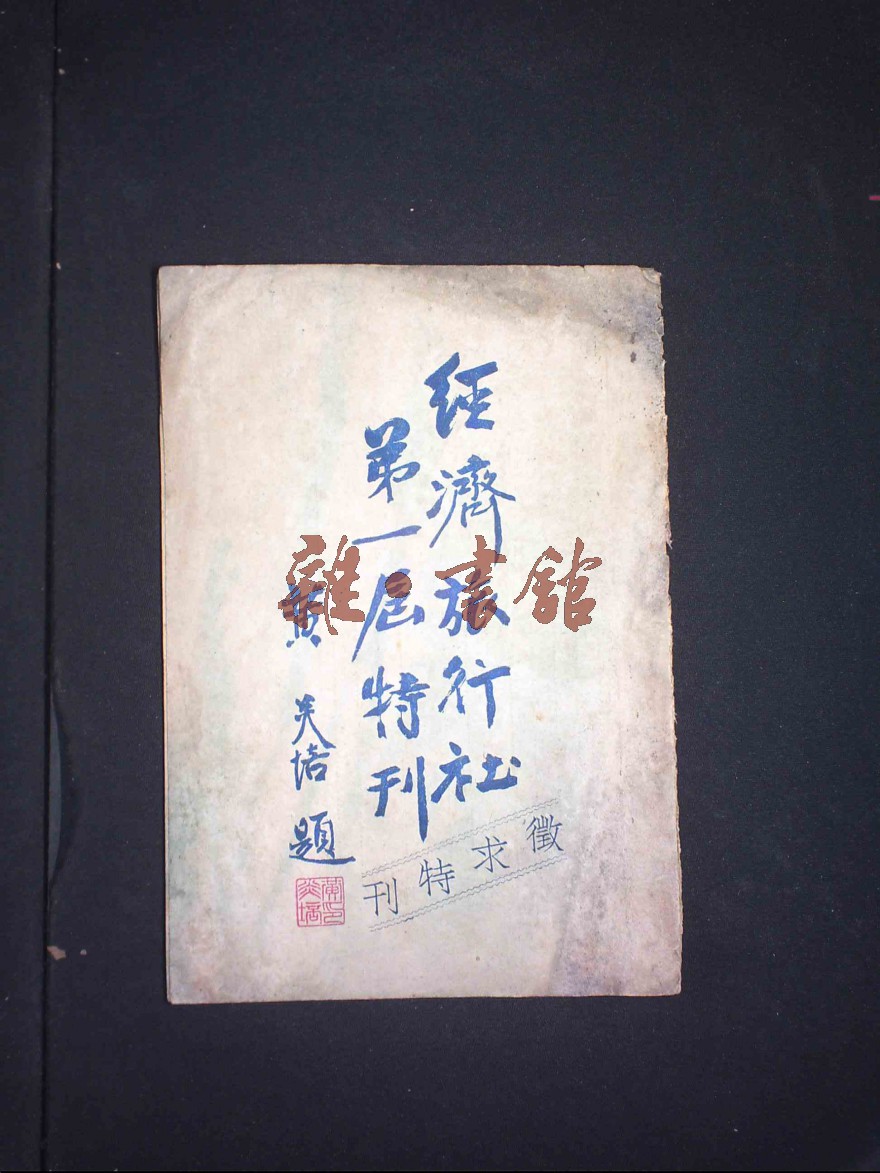 經濟旅行社
第一屆特刊
黃炎培題
黃炎培印
徵求特刊
雜·書館